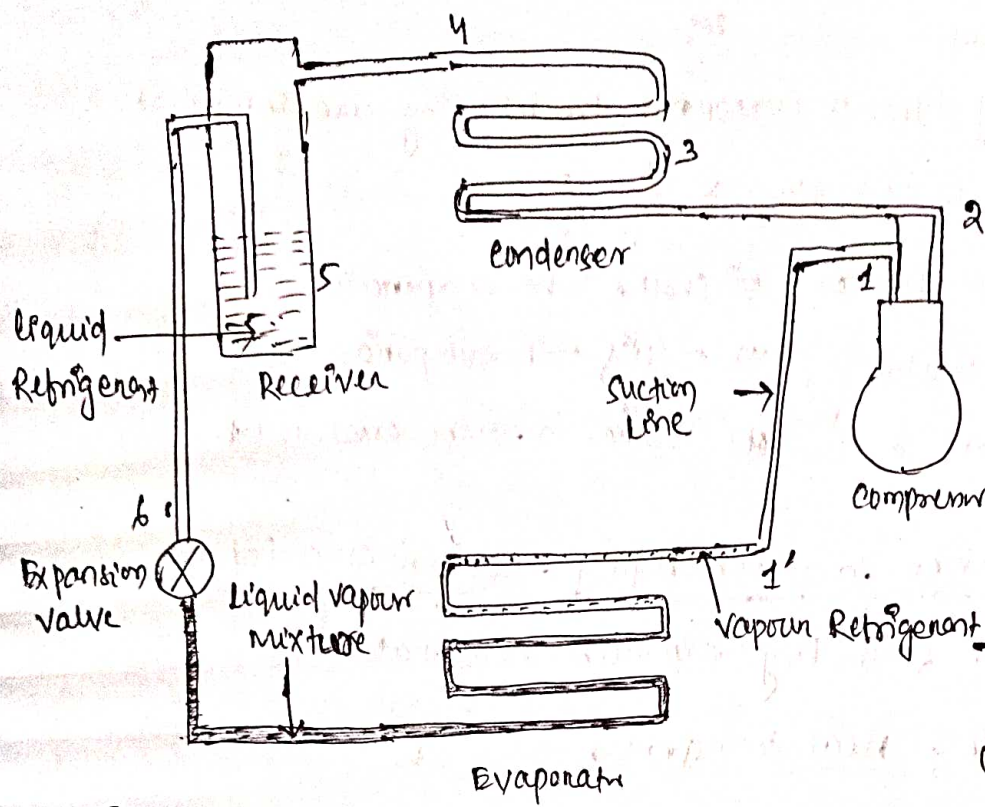 4
3
2
Condenser
1
5
Liquid
Refrigerant
Receiver
Suction
Line
Compressor
6
Expansion
valve
Liquid vapour
Mixture
1'
Vapour Refrigerant
Evaporator